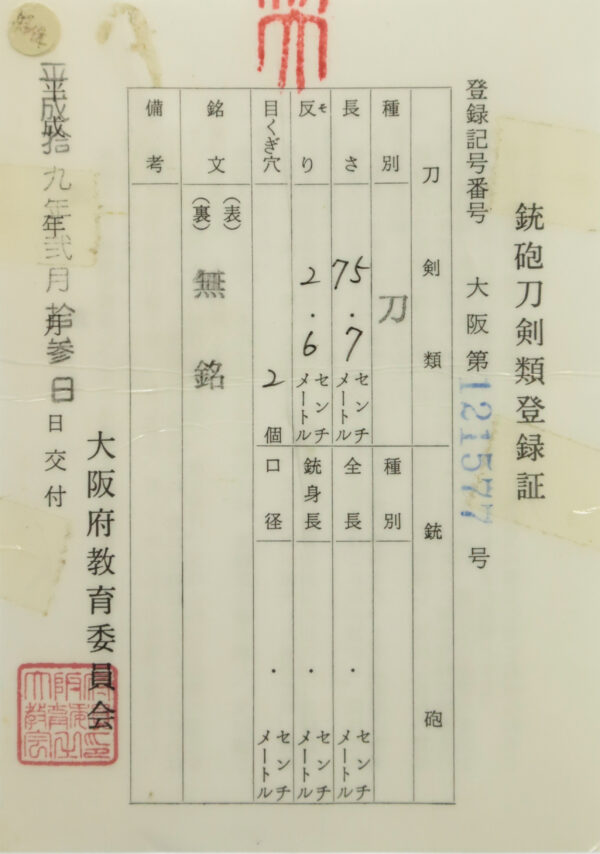 銃砲刀剣類登録証
登録記号番号 大阪第121577号
刀剣類
種別 刀
長さ 75.7センチメートル
反り モ 2.6センチメートル
目くぎ穴 2個
銘文 (表) (裏) 無銘
備考
銃砲
種別
全長 ・ センチメートル
銃身長 ・ センチメートル
口径 ・ センチメートル
平成拾九年弐月拾参日 年月日交付
大阪府教育委員会